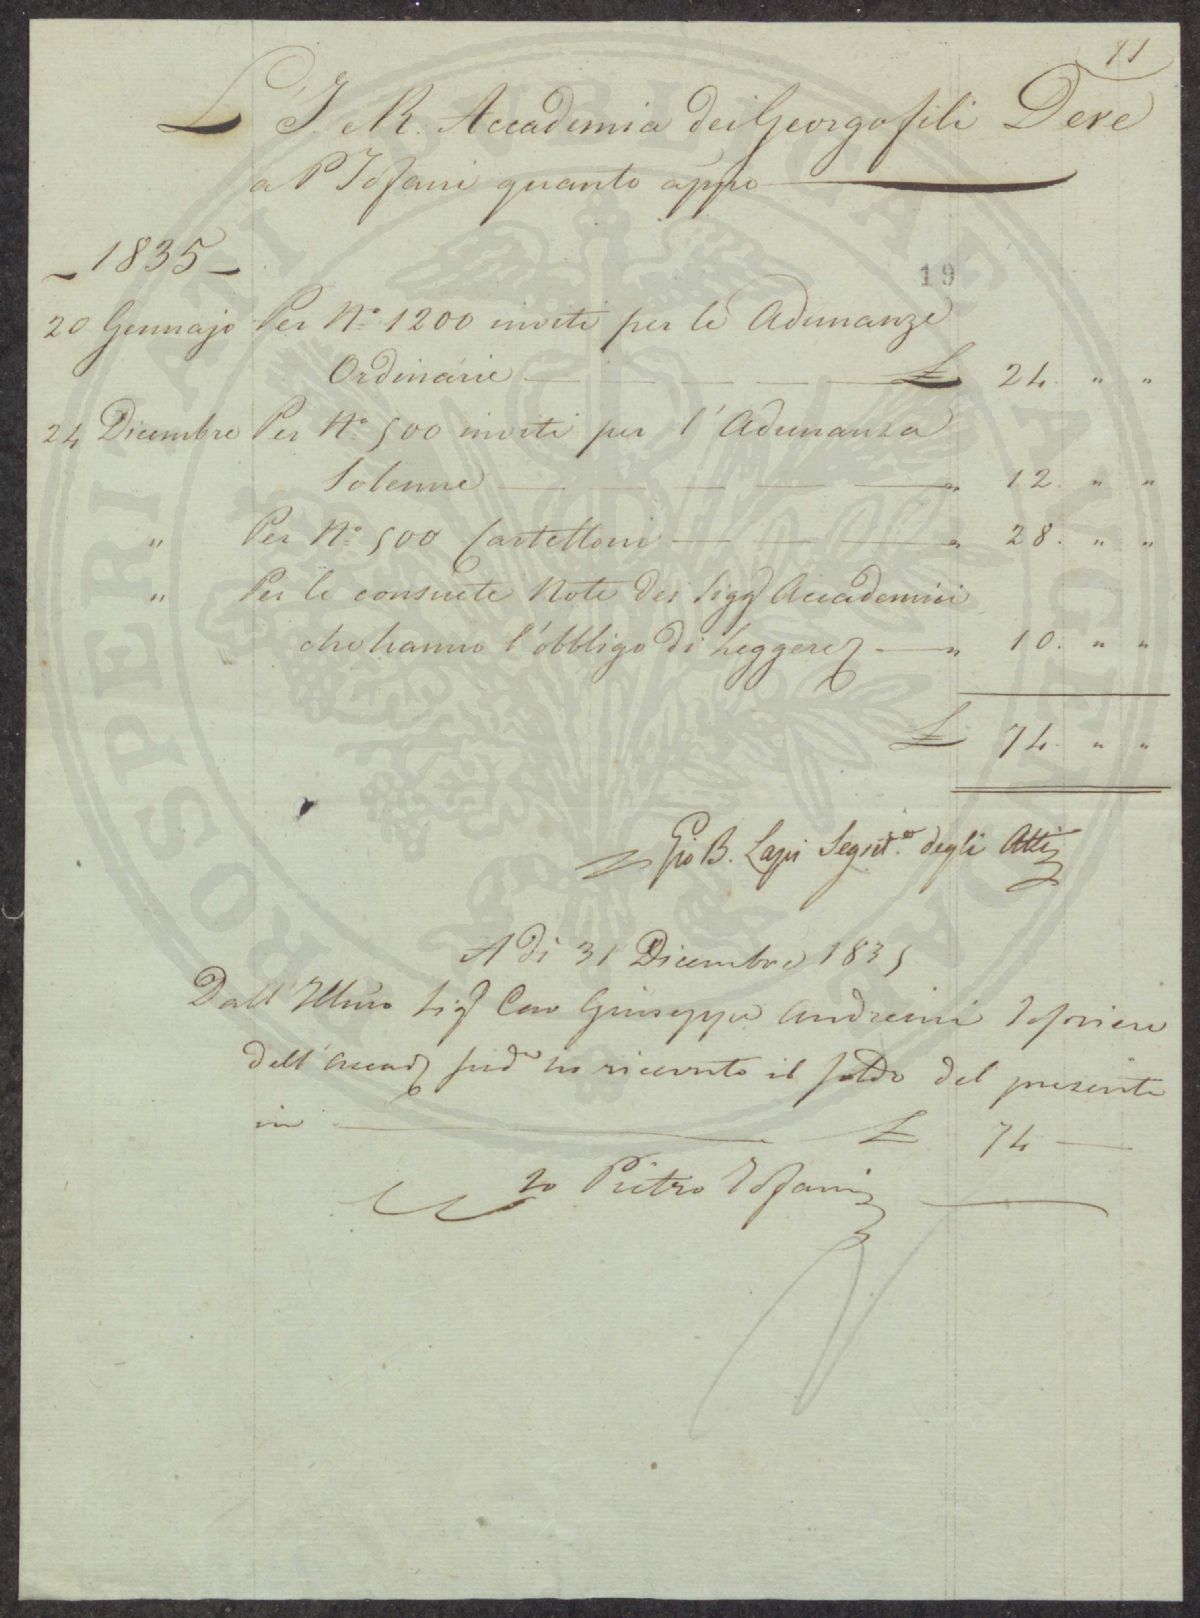 11
L'I. e R. Accademia dei Georgofili Deve
a P Tofani quanto app.o
1835
19
20 Gennajo Per N.o 1200 inviti per le Adunanze
Ordinarie £ 24. " "
24 Dicembre Per N.o 500 inviti per l'Adunanza
Solenne " 12. " "
" Per N.o 500 Cartelloni " 28. " "
" Per le consuete Note dei Sigg Accademici
che hanno l'obbligo di Leggere " 10. " "
£ 74. " "
Gio B. Lapi Segret.o degli Atti
A dì 31 Dicembre 1835
Dall'Illmo Sig Cav Giuseppe Andreini Tesoriere
dell'Accad sud.a ho ricevuto il saldo del presente
in £ 74
Io Pietro Tofani
PROSPERITATI PUBLICAE AUGENDAE